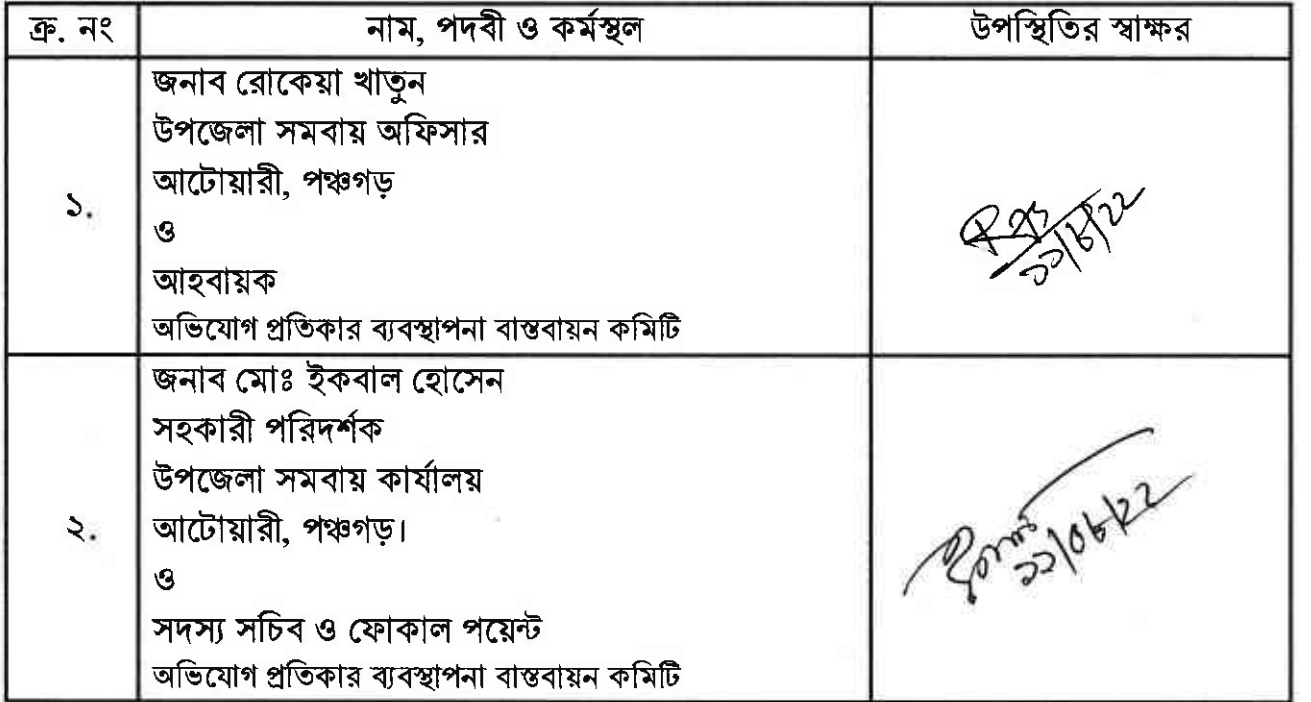 ক্র. নং নাম, পদবী ও কর্মস্থল উপস্থিতির স্বাক্ষর
জনাব রোকেয়া খাতুন
উপজেলা সমবায় অফিসার
আটোয়ারী, পঞ্চগড়
১.
ও
আহবায়ক
অভিযোগ প্রতিকার ব্যবস্থাপনা বাস্তবায়ন কমিটি
জনাব মোঃ ইকবাল হোসেন
সহকারী পরিদর্শক
উপজেলা সমবায় কার্যালয়
২. আটোয়ারী, পঞ্চগড়।
ও
সদস্য সচিব ও ফোকাল পয়েন্ট
অভিযোগ প্রতিকার ব্যবস্থাপনা বাস্তবায়ন কমিটি